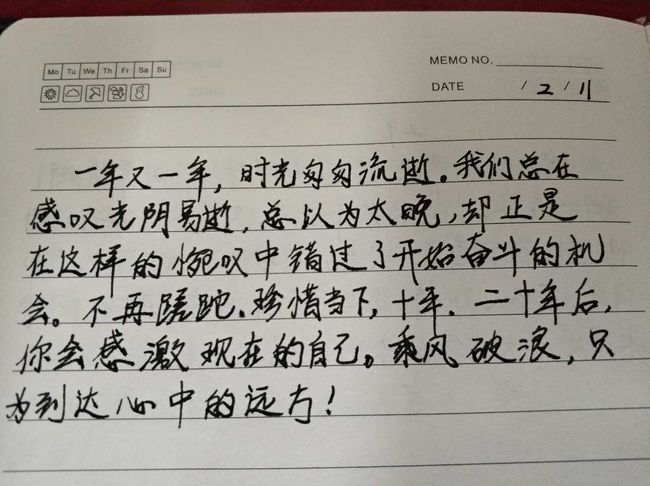 Mo Tu We Th Fr Sa Su
MEMO NO.
DATE / 2 / 11
一年又一年，时光匆匆流逝。我们总在
感叹光阴易逝，总以为太晚，却正是
在这样的惋叹中错过了开始奋斗的机
会。不再蹉跎、珍惜当下，十年、二十年后，
你会感激现在的自己。乘风破浪，只
为到达心中的远方！